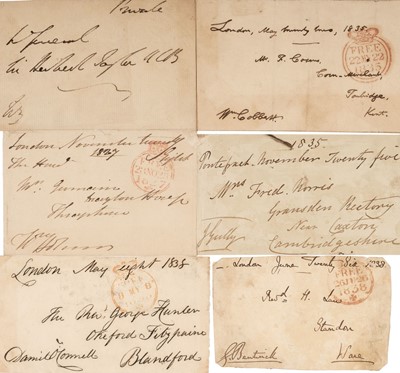 Private
General
Sir Herbert Taylor GCB
London, May twenty two, 1835.
FREE
22 MY 22
1835
Mr. P. Cowes,
Corn-Merchant,
Tonbridge,
Kent.
Wm. Cobbett
London, November twenty
1827
The Honble
Mrs. Germaine
Drayton House
Thrapstone
1835.
Pontefract November Twenty five
Mrs Fred. Norris
Gransden Rectory
New Caxton
Cambridgeshire
J Gully
London May eight 1838
The Revd. George Hunter
Okeford Fitzpaine
Blandford
Daniel O'Connell
London June Twenty Six 1838
FREE
26 JU 26
1838
Revd. H. Law
Standon
Ware
G. Bentinck